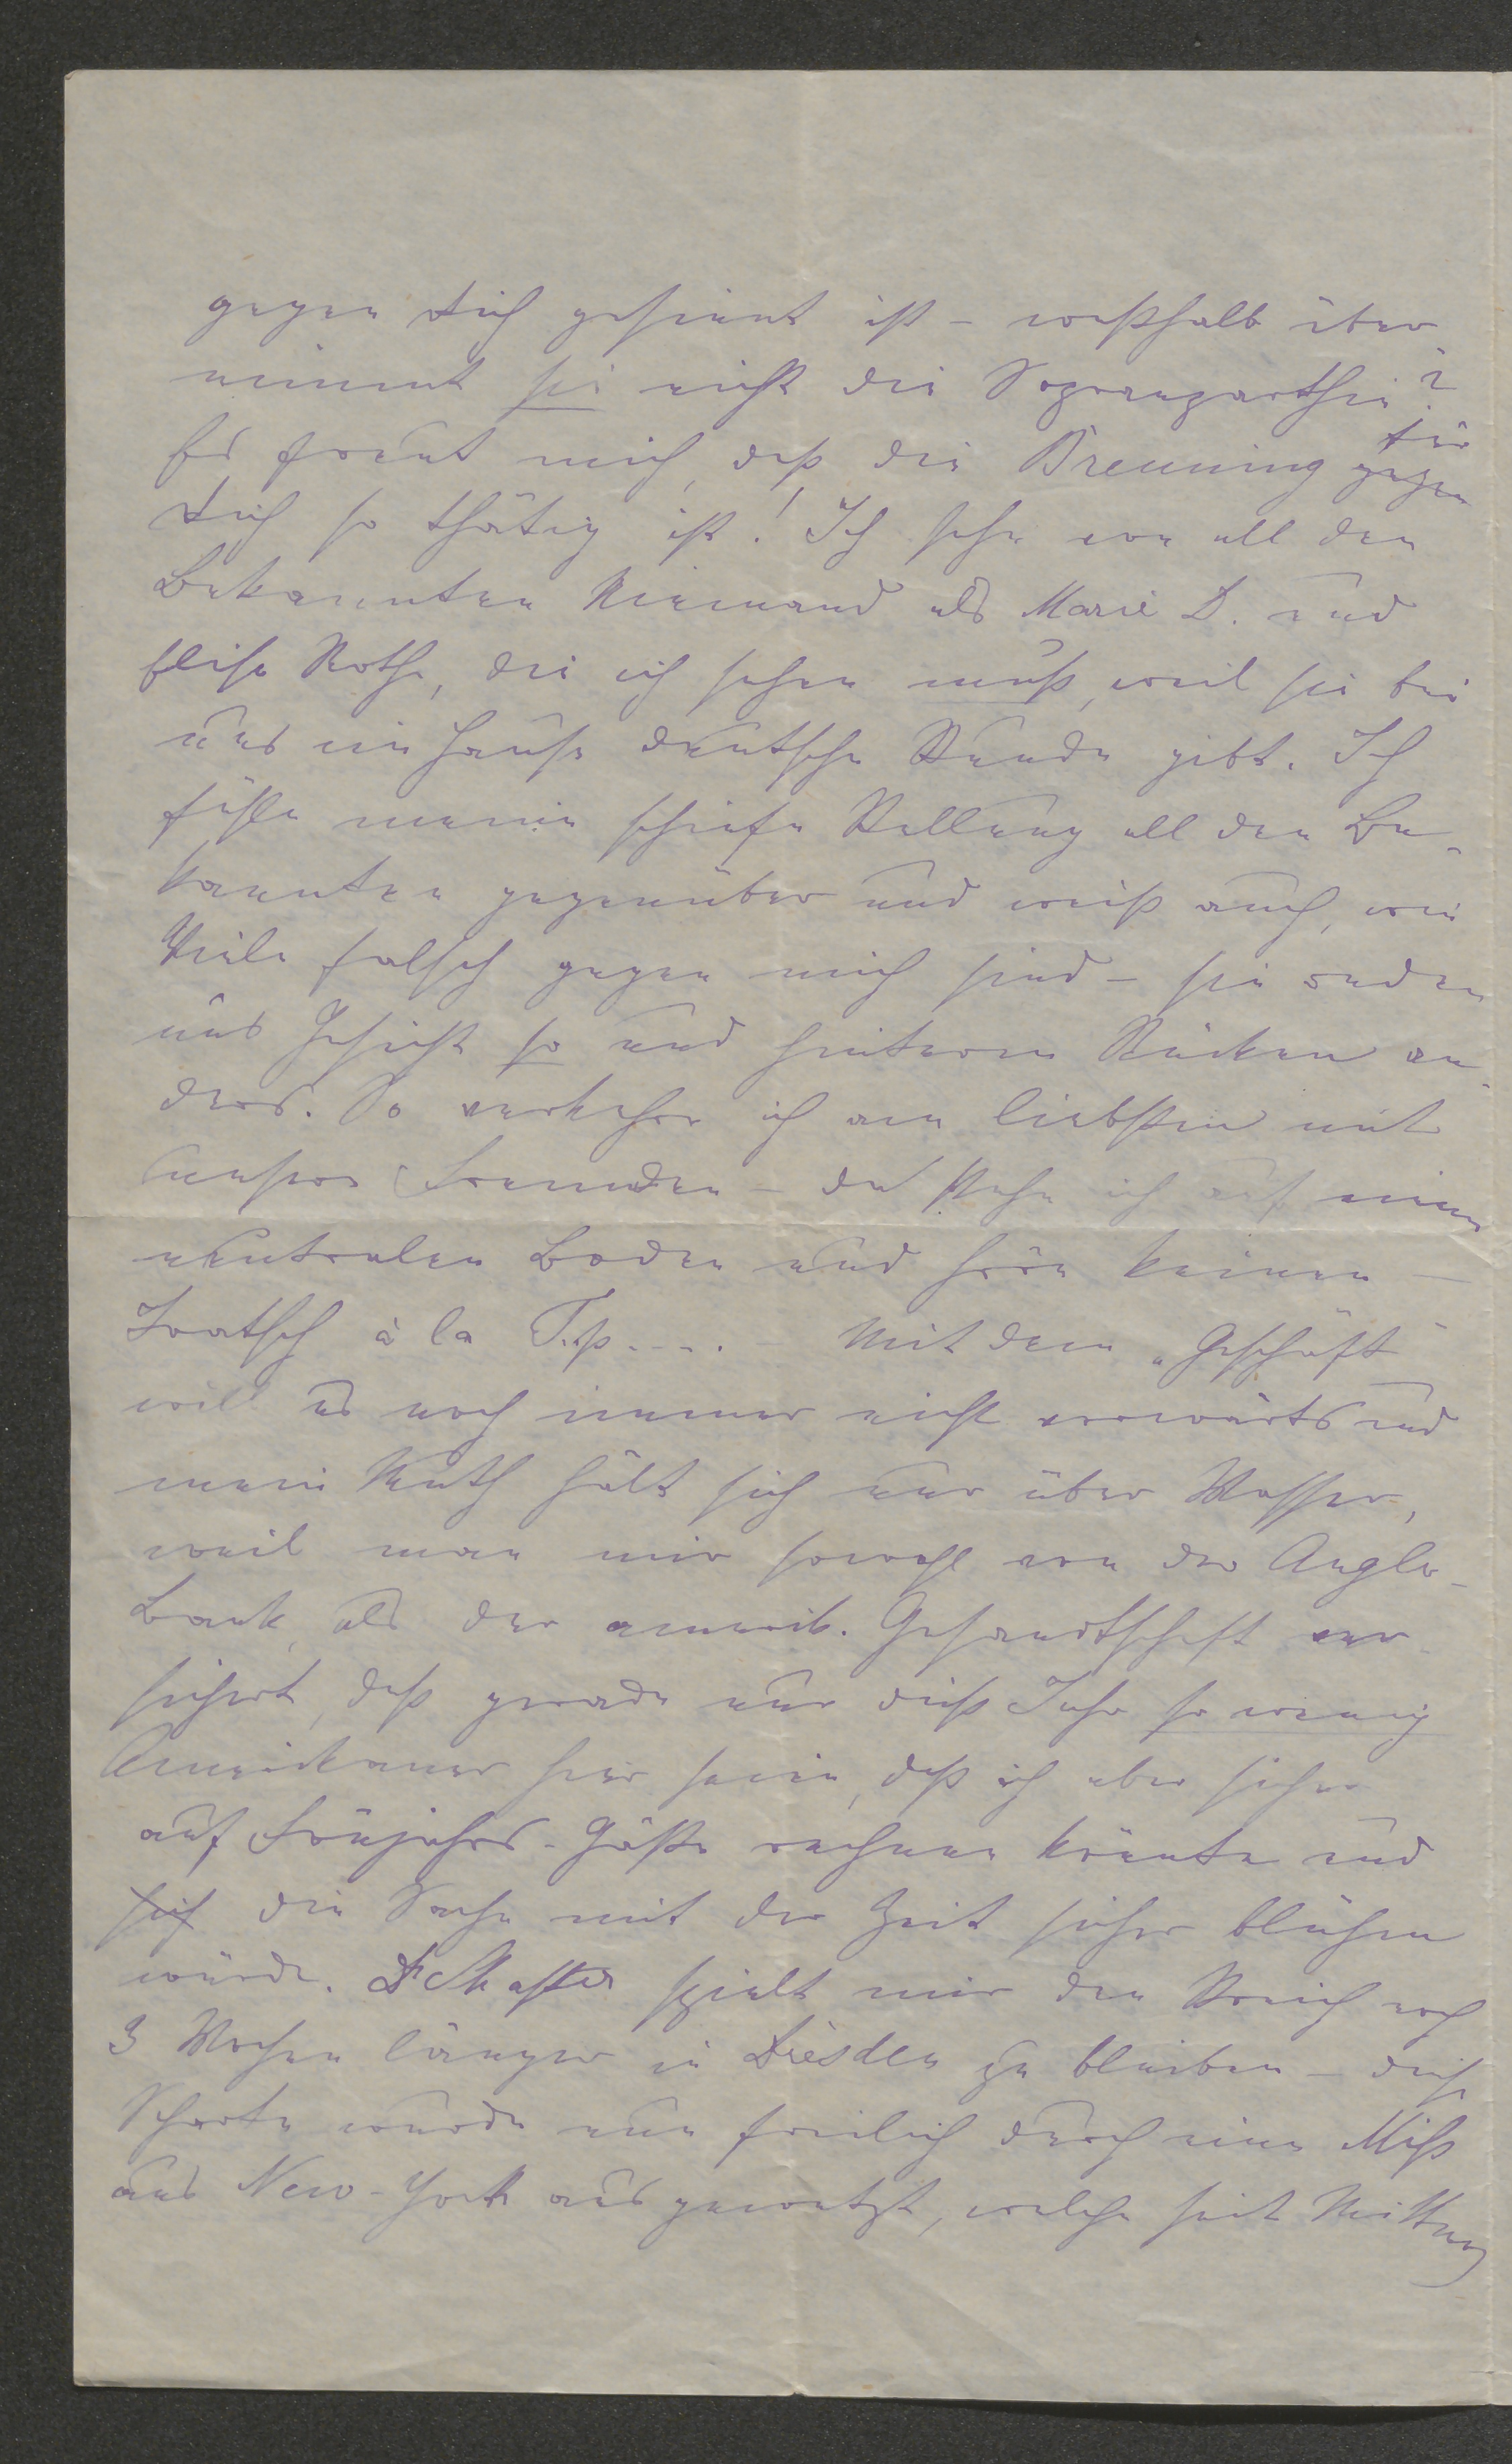 gegen Dich gesinnt ist – weßhalb über-
nimmt sie nicht die Sopranparthie?
Es freut mich, daß die Breuning gegen für
Dich so thätig ist! Ich sehe von all den
Bekannten Niemand als Marie D. und
Elise Rothe, die ich sehen muß, weil sie bei
uns im Hause deutsche Stunde gibt. Ich
fühle meine schiefe Stellung all den Be-
kannten gegenüber und weiß auch, wie
Viele falsch gegen mich sind – sie reden
ins Gesicht so und hinterm Rücken an-
ders. So verkehre ich am liebsten mit
unsren Fremden – da stehe ich auf einem
neutralen Boden und höre keinen –
Tratsch à la – Mit dem „Geschäft"
will es noch immer nicht vorwärts und
mein Muth hält sich nur über Wasser,
weil man mir sowohl von der Anglo-
Bank, als der amerik. Gesandtschaft ver-
sichert, daß gerade nur dieß Jahr so wenig
Amerikaner hier seien, daß ich aber sicher
auf Frühjahrs-Gäste rechnen könnte und
sich die Sache mit der Zeit sicher blühen
würde. spielt mir den Streich noch
3 Wochen länger in Dresden zu bleiben – diese
Scharte wurde nun freilich durch eine Miß
aus New-York ausgewetzt, welche seit Mittwoch